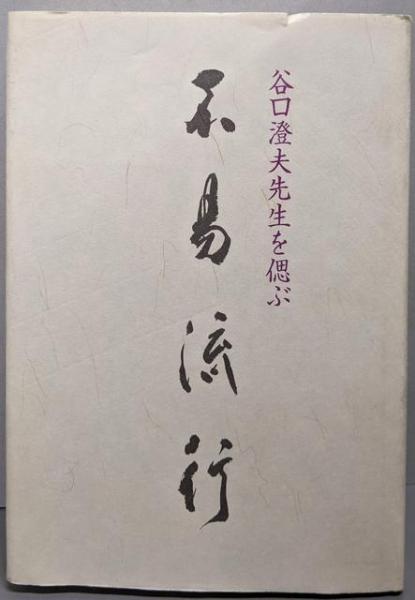 谷口澄夫先生を偲ぶ
不易流行